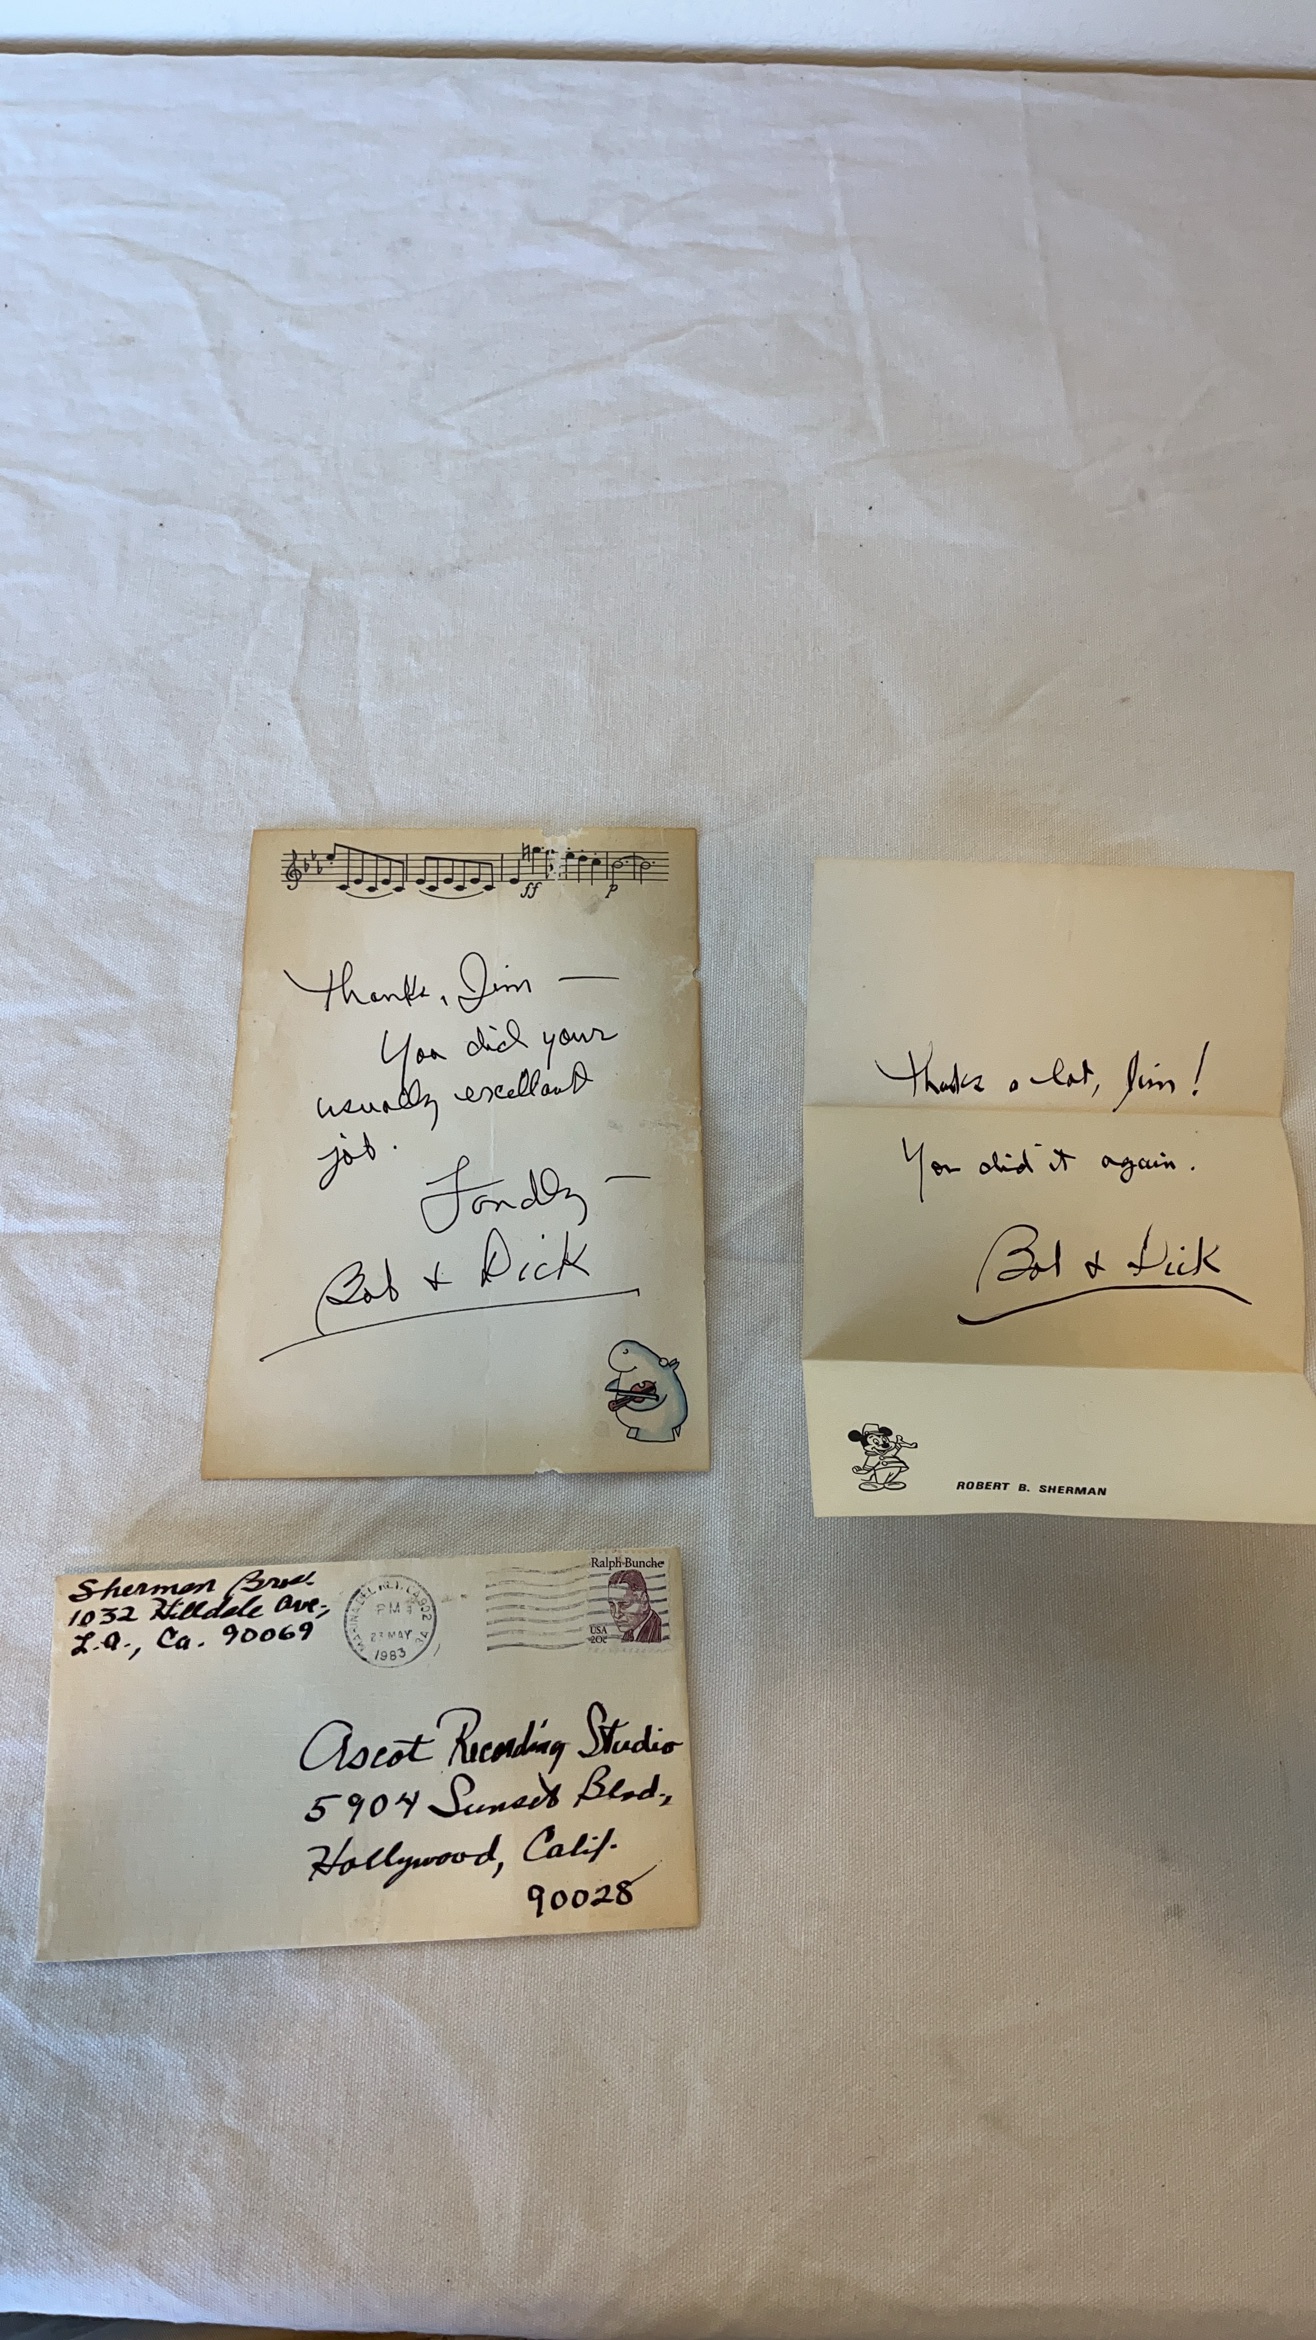 ff
p
Thanks, Jim —
You did your
usually excellent
job.
Fondly —
Bob & Dick
Thanks a lot, Jim!
You did it again.
Bob & Dick
ROBERT B. SHERMAN
Sherman Bros.
1032 Hilldale Ave.,
L.A., Ca. 90069
PM
MAY
1983
Ralph Bunche
USA
20c
Ascot Recording Studio
5904 Sunset Blvd.,
Hollywood, Calif.
90028